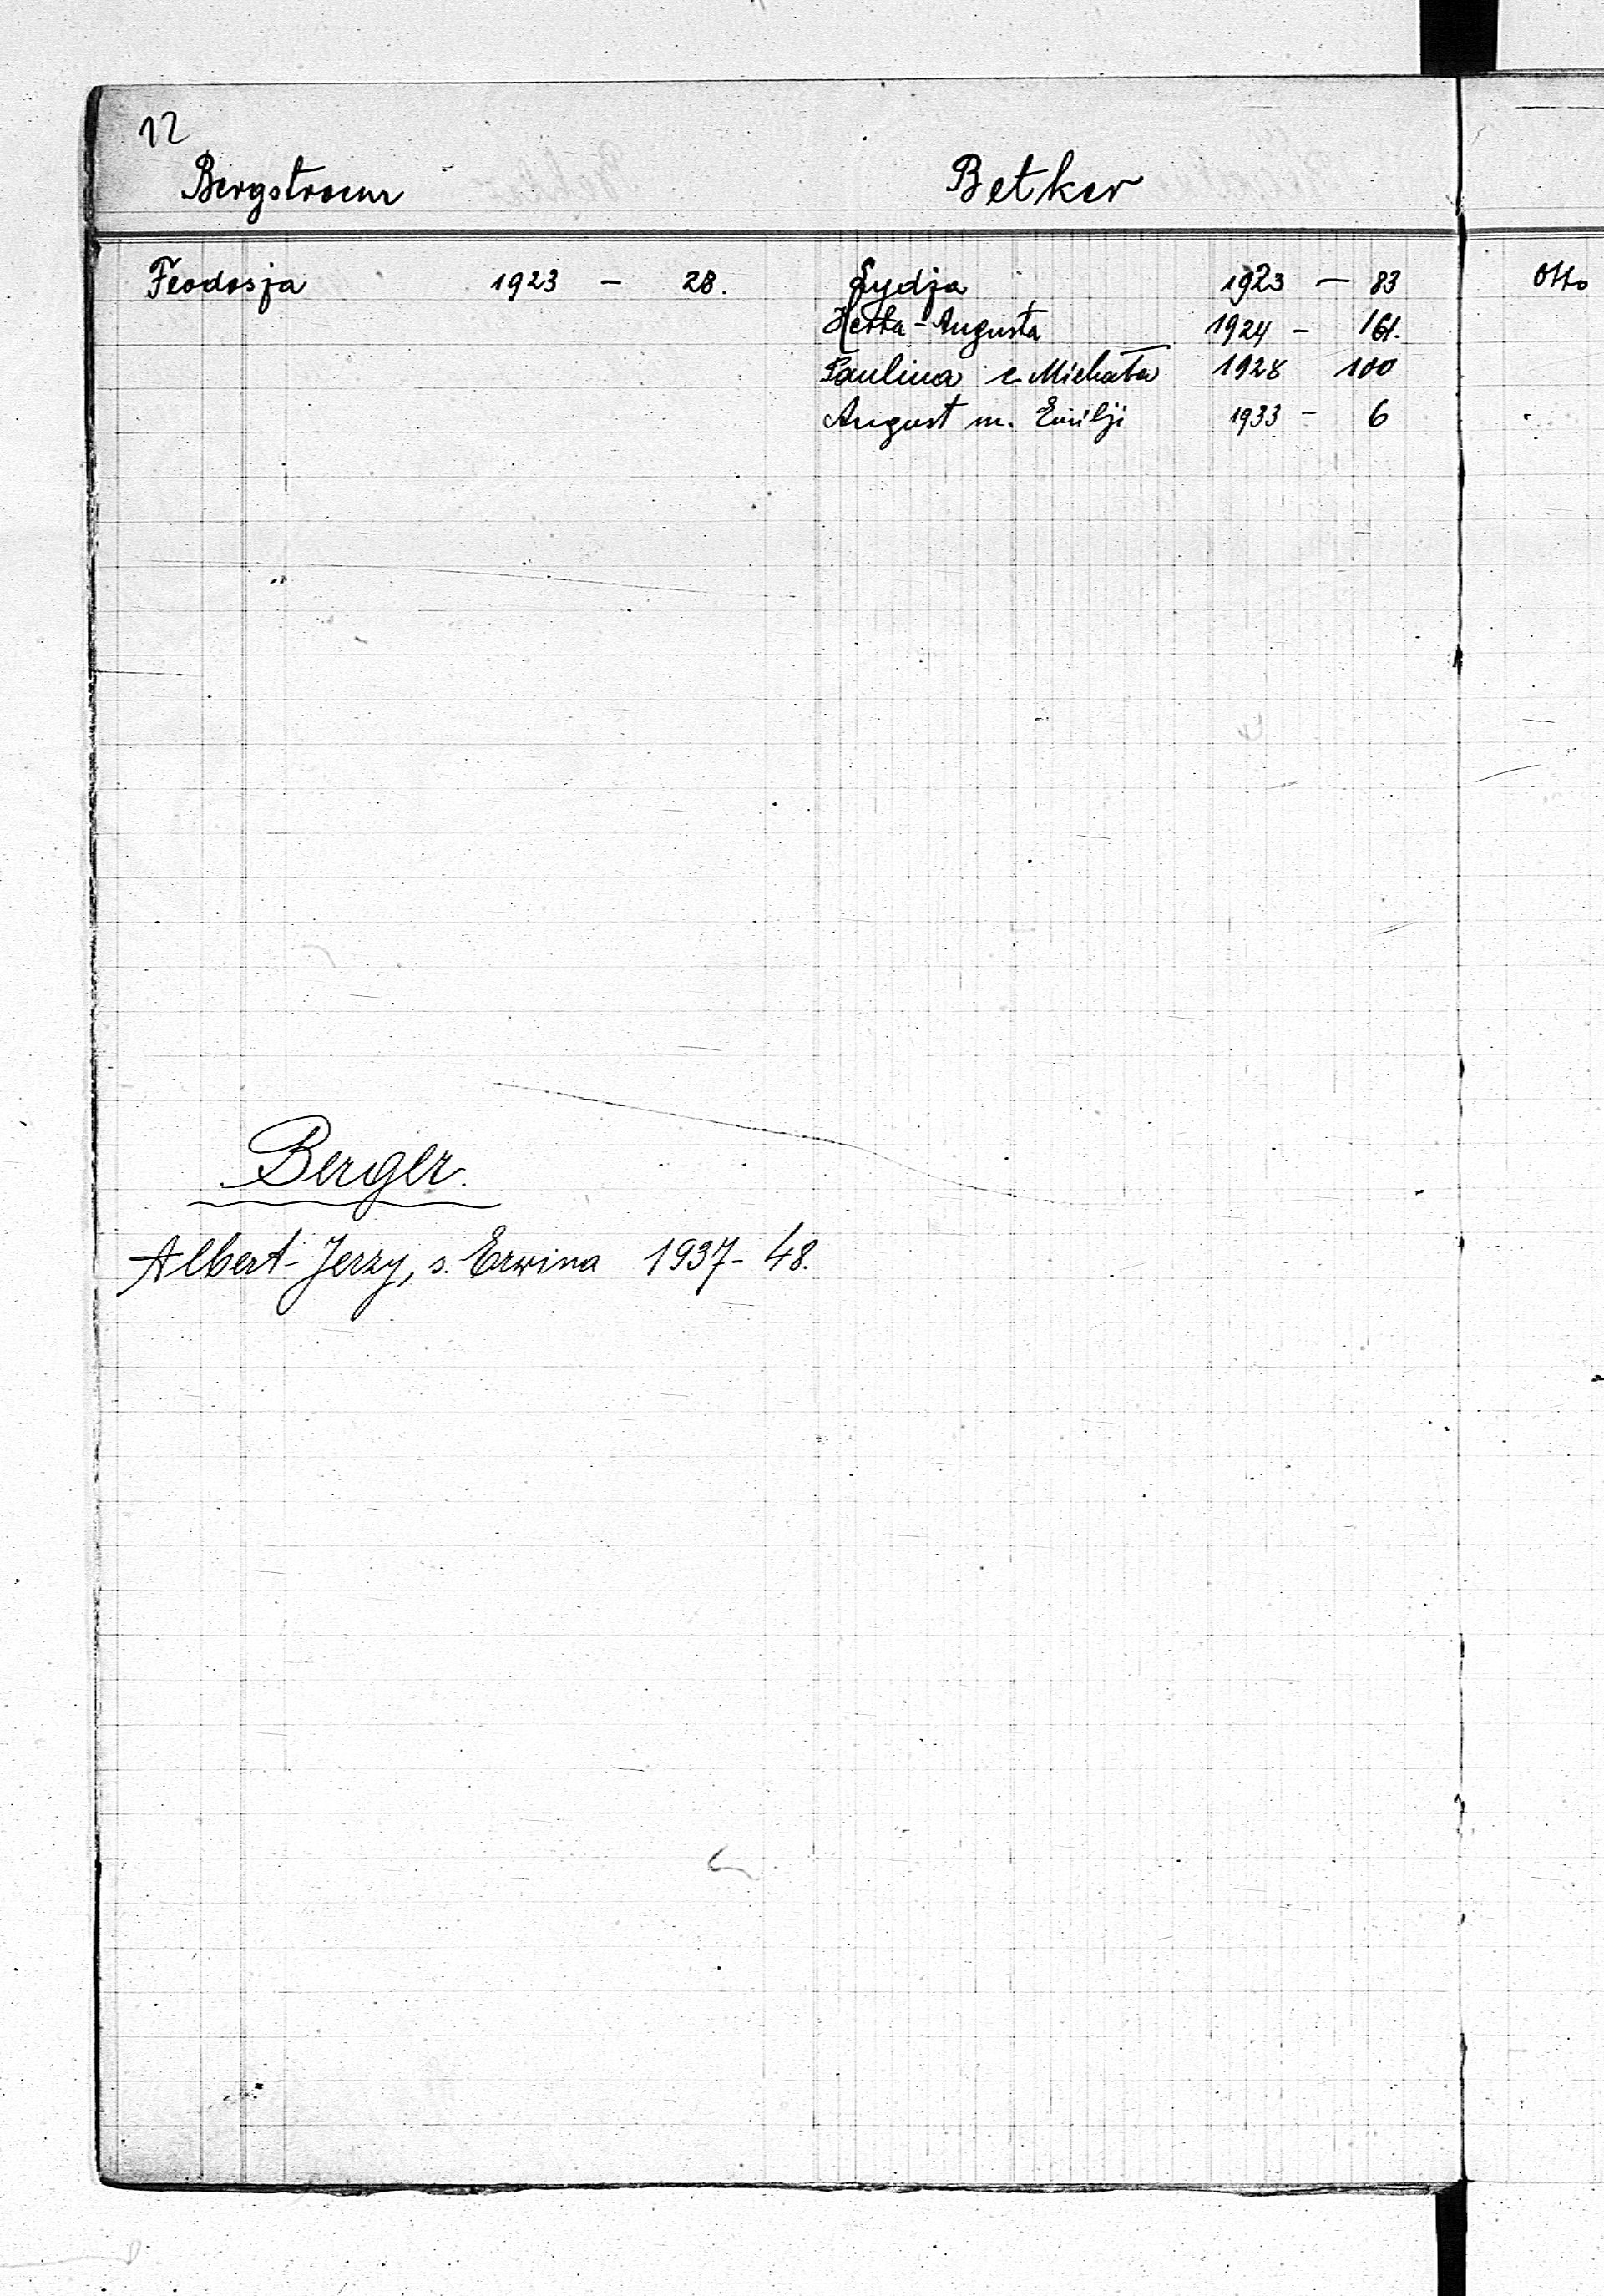 12
Bergstroem
Feodosja 1923 - 28.
Berger.
Albert-Jerzy, s. Erwina 1937-48.
Betker
Lydja 1923 - 83
Herta-Augusta 1924 - 161.
Paulina c. Michała 1928 100
August m. Emilji 1933 - 6
Otto